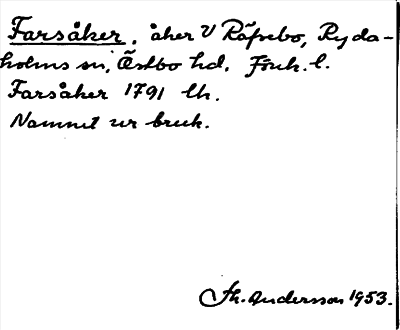 Farsåker, åker V Räfsebo, Ryda-
holms sn, Östbo hd, Jönk. l.
Farsåker 1791 Uh.
Namnet ur bruk.
Th. Andersson 1953.